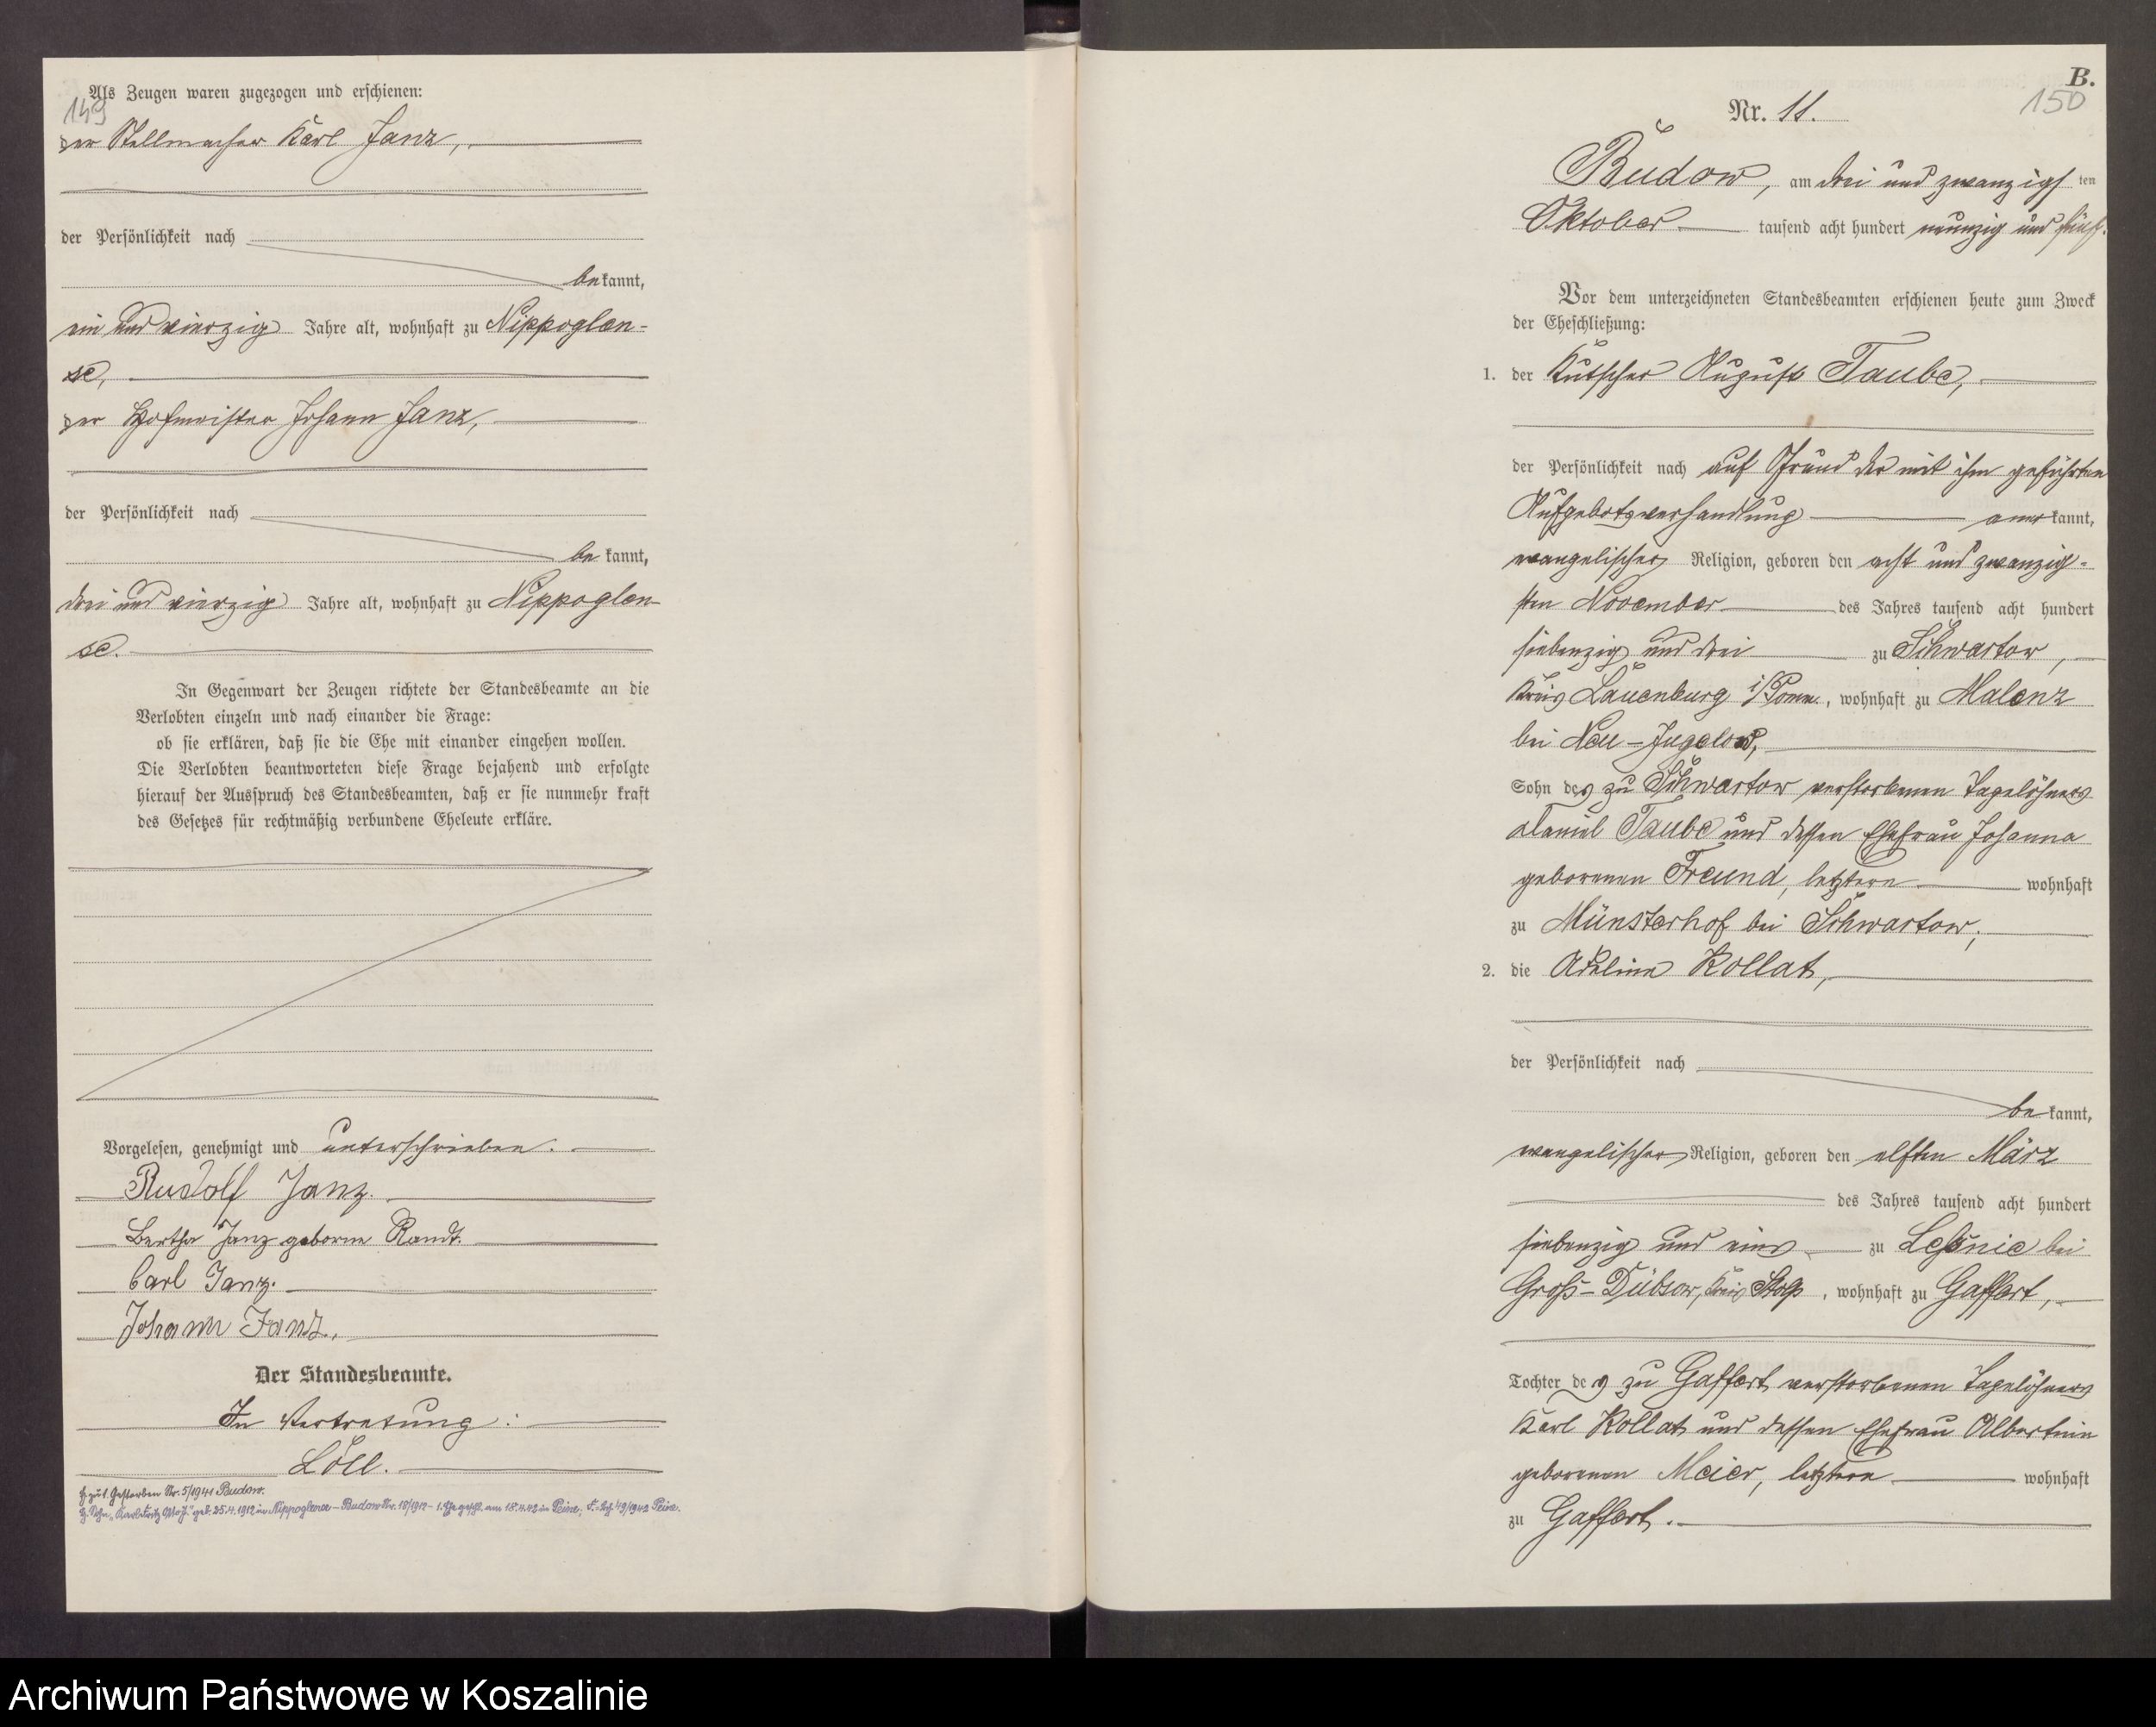 Als Zeugen waren zugezogen und erschienen:
149
der Stellmacher Karl Janz,
der Persönlichkeit nach
bekannt,
ein und vierzig Jahre alt, wohnhaft zu Nippoglen-
se,
der Hofmeister Johann Janz,
der Persönlichkeit nach
bekannt,
drei und vierzig Jahre alt, wohnhaft zu Nippoglen-
se.
In Gegenwart der Zeugen richtete der Standesbeamte an die
Verlobten einzeln und nach einander die Frage:
ob sie erklären, daß sie die Ehe mit einander eingehen wollen.
Die Verlobten beantworteten diese Frage bejahend und erfolgte
hierauf der Ausspruch des Standesbeamten, daß er sie nunmehr kraft
des Gesetzes für rechtmäßig verbundene Eheleute erkläre.
Vorgelesen, genehmigt und unterschrieben.
Rudolf Janz.
Bertha Janz geborne Randt.
Carl Janz.
Johann Janz.
Der Standesbeamte.
In Vertretung:
Löll.
Gestorben Nr. 5/1941 Budow.
geb. 25.4.1912 in Nippoglense – Budow Nr. 18/1912 – 1. Ehe geschl. am 18.4.42 in Peine, 49/1942 Peine.
B.
150
Nr. 11.
Budow, am drei und zwanzigsten
Oktober tausend acht hundert neunzig und fünf.
Vor dem unterzeichneten Standesbeamten erschienen heute zum Zweck
der Eheschließung:
1. der Kutscher August Taube,
der Persönlichkeit nach auf Grund der mit ihm geführten
Aufgebotsverhandlung anerkannt,
evangelischer Religion, geboren den acht und zwanzig-
sten November des Jahres tausend acht hundert
siebenzig und drei zu Schwartow,
Kreis Lauenburg i/Pomm., wohnhaft zu Malenz
bei Neu-Jugelow,
Sohn des zu Schwartow verstorbenen Tagelöhners
Daniel Taube und dessen Ehefrau Johanna
geborenen Freund, letztere wohnhaft
zu Münsterhof bei Schwartow;
2. die Adeline Kollat,
der Persönlichkeit nach
bekannt,
evangelischer Religion, geboren den elften März
des Jahres tausend acht hundert
siebenzig und eins zu Leßnic bei
Groß-Dübsow, Kreis Stolp, wohnhaft zu Gaffert,
Tochter des zu Gaffert verstorbenen Tagelöhners
Karl Kollat und dessen Ehefrau Albertine
geborenen Meier, letztere wohnhaft
zu Gaffert.
Archiwum Państwowe w Koszalinie